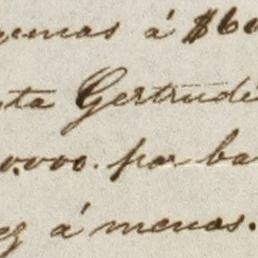 yemas á $60
ta Gertrudi
0.000. por ba
ez á menos.